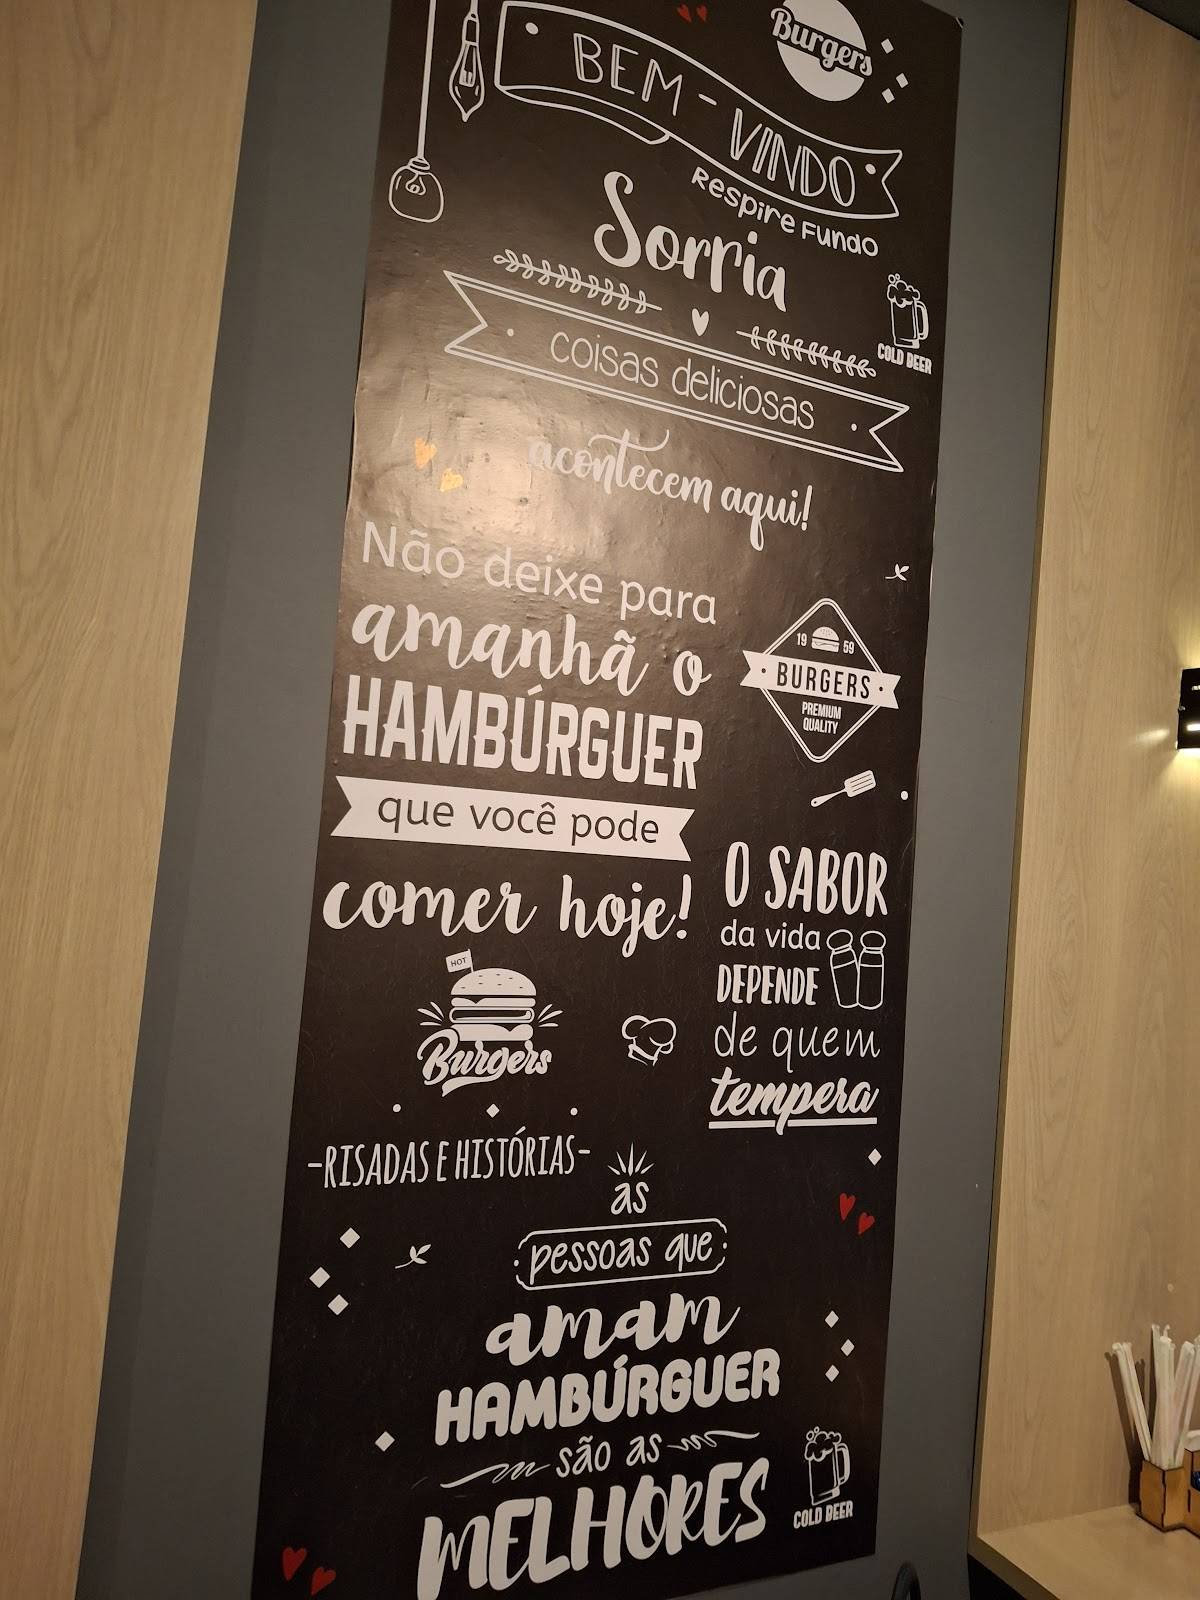 Burgers
BEM-VINDO
Respire Fundo
Sorria
COLD BEER
coisas deliciosas
acontecem aqui!
Não deixe para
amanhã o
HAMBÚRGUER
que você pode
comer hoje!
19 59
BURGERS
PREMIUM
QUALITY
O SABOR
da vida
DEPENDE
de quem
tempera
HOT
Burgers
-RISADAS E HISTÓRIAS-
as
pessoas que
amam
HAMBÚRGUER
são as
MELHORES
COLD BEER